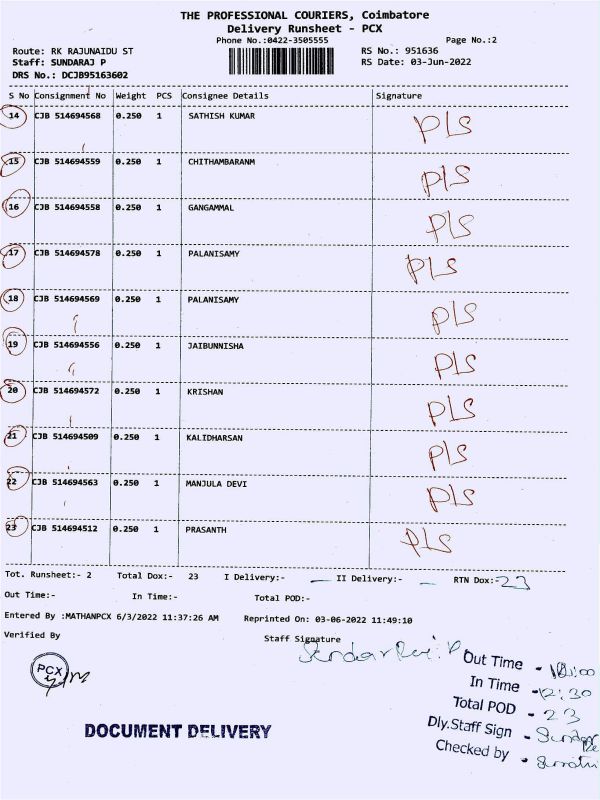 THE PROFESSIONAL COURIERS, Coimbatore
Delivery Runsheet - PCX
Phone No.:0422-3505555 Page No.:2
Route: RK RAJUNAIDU ST RS No.: 951636
Staff: SUNDARAJ P RS Date: 03-Jun-2022
DRS No.: DCJB95163602
S No Consignment No Weight PCS Consignee Details Signature
14 CJB 514694568 0.250 1 SATHISH KUMAR PLS
15 CJB 514694559 0.250 1 CHITHAMBARANM PLS
16 CJB 514694558 0.250 1 GANGAMMAL PLS
17 CJB 514694578 0.250 1 PALANISAMY PLS
18 CJB 514694569 0.250 1 PALANISAMY PLS
19 CJB 514694556 0.250 1 JAIBUNNISHA PLS
20 CJB 514694572 0.250 1 KRISHAN PLS
21 CJB 514694509 0.250 1 KALIDHARSAN PLS
22 CJB 514694563 0.250 1 MANJULA DEVI PLS
23 CJB 514694512 0.250 1 PRASANTH PLS
Tot. Runsheet:- 2 Total Dox:- 23 I Delivery:- — II Delivery:- — RTN Dox:- 23
Out Time:- In Time:- Total POD:-
Entered By :MATHANPCX 6/3/2022 11:37:26 AM Reprinted On: 03-06-2022 11:49:10
Verified By Staff Signature
PCX
Out Time -
In Time - 12:30
Total POD - 23
Dly.Staff Sign -
Checked by -
DOCUMENT DELIVERY